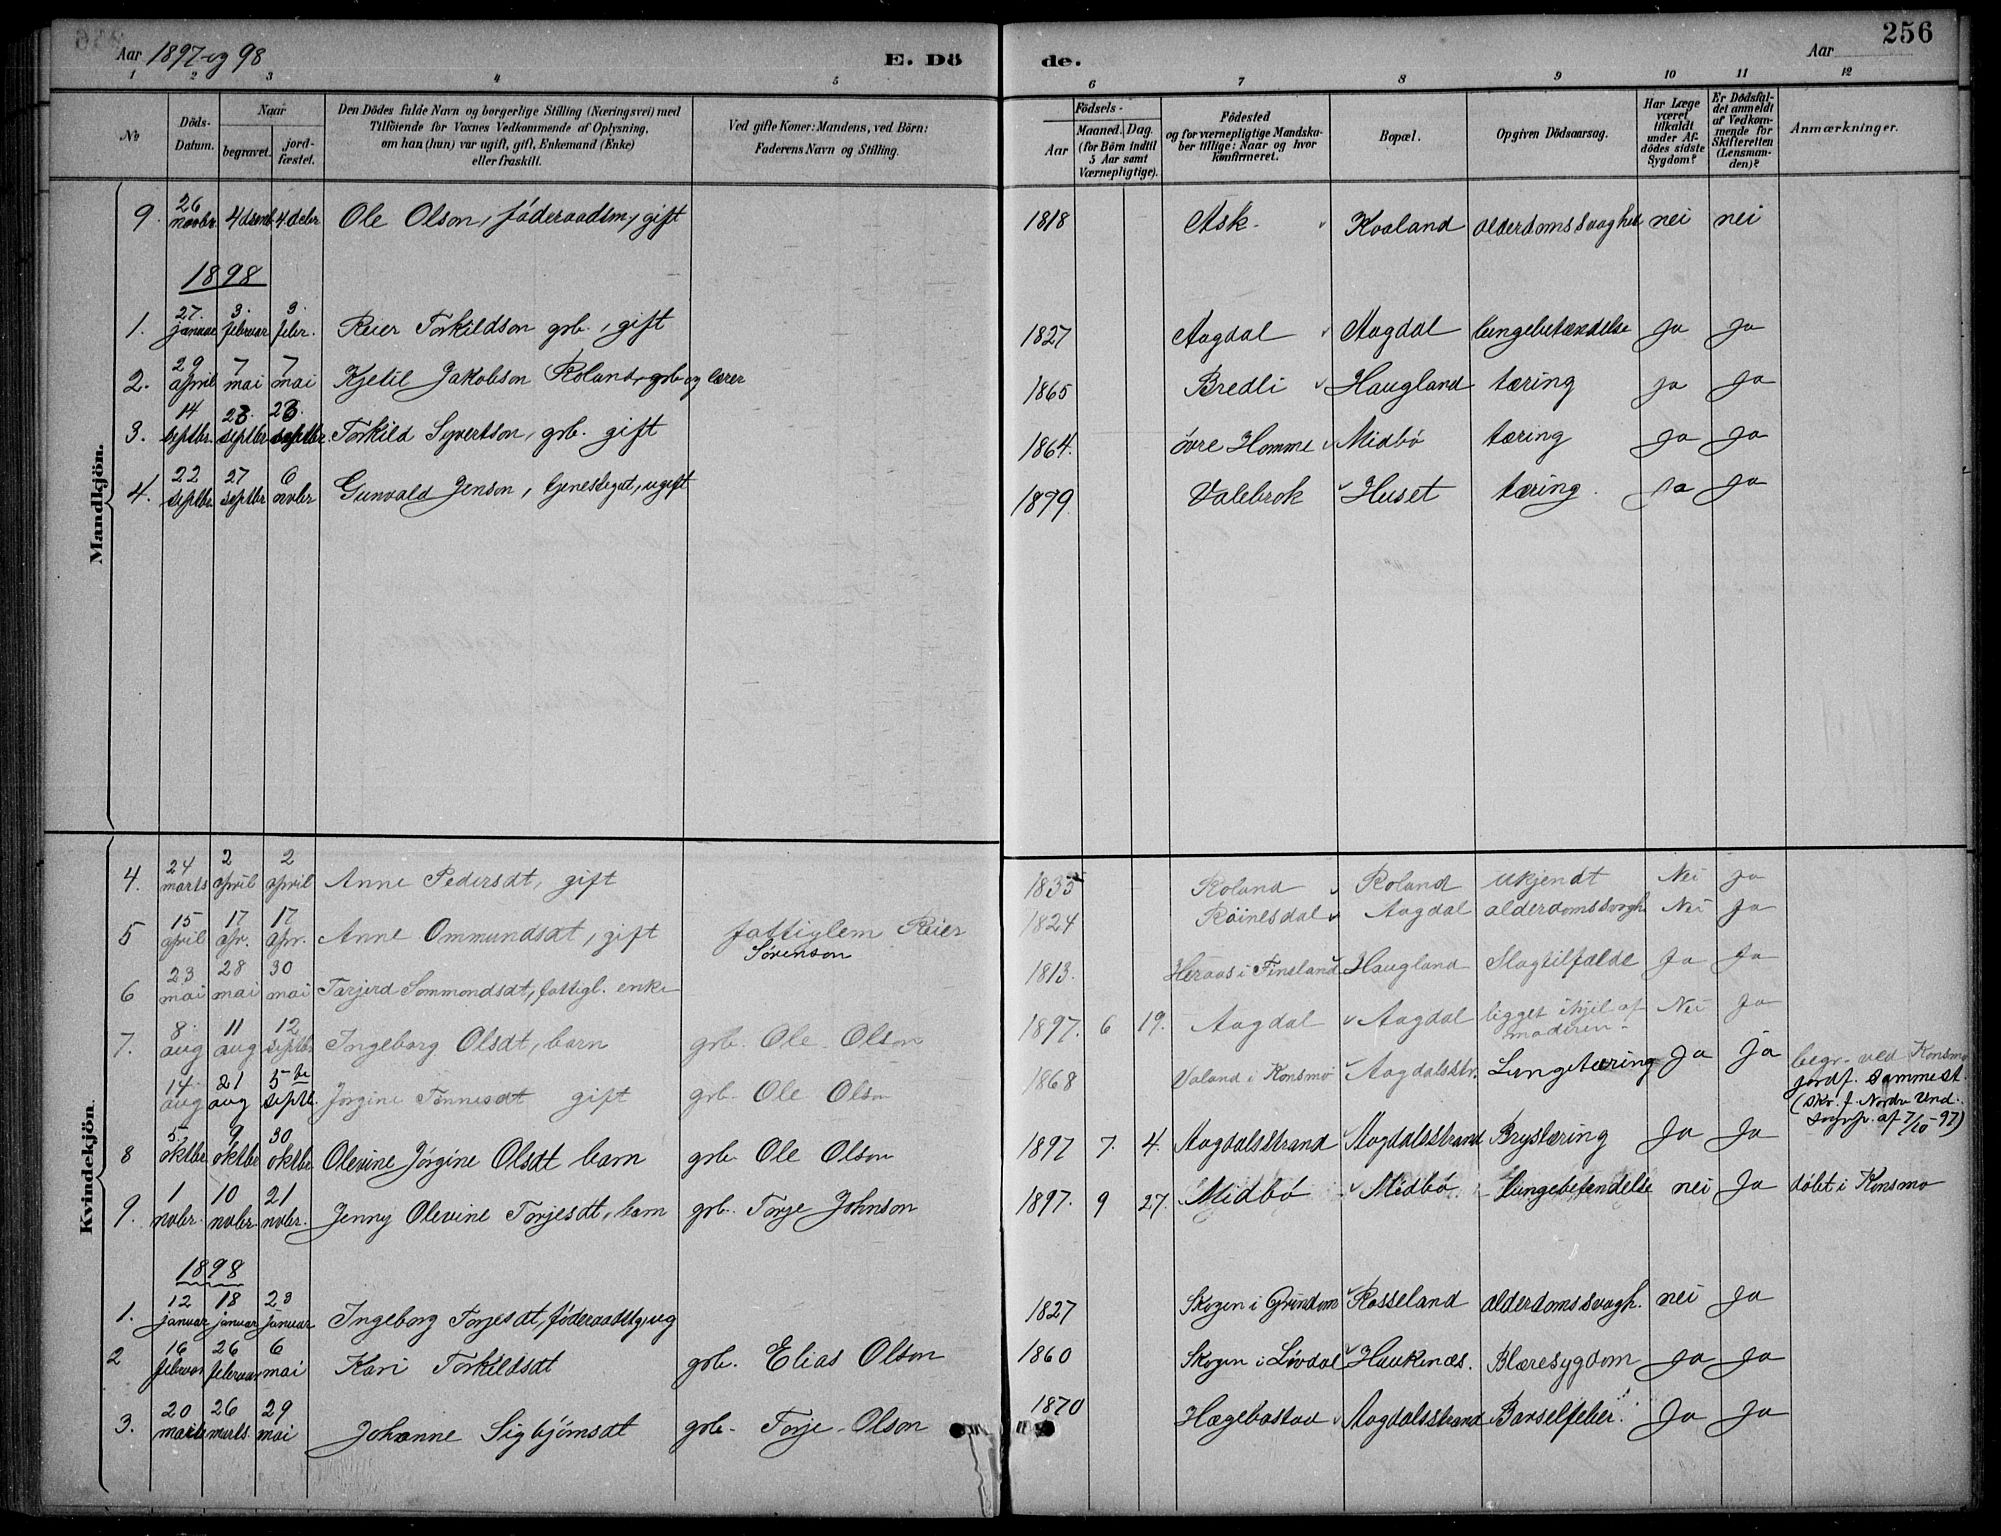 Aar 1897 og 98
E. Dö
de.
Aar
256
1 2 3 4 5 6 7 8 9 10 11 12
No
Döds-Datum.
Naar
begravet.
jord-fæstet.
Den Dödes fulde Navn og borgerlige Stilling (Næringsvei) med
Tilföiende for Voxnes Vedkommende af Oplysning,
om han (hun) var ugift, gift, Enkemand (Enke)
eller fraskilt.
Ved gifte Koner: Mandens, ved Börn:
Faderens Navn og Stilling.
Födsels-
Aar
Maaned. Dag.
(for Börn indtil
5 Aar samt
Værnepligtige).
Födested
og for værnepligtige Mandska-
ber tillige: Naar og hvor
konfirmeret.
Bopæl.
Opgiven Dödsaarsag.
Har Læge
været
tilkaldt
under Af-
dödes sidste
Sygdom?
Er Dödsfal-
det anmeldt
af Vedkom-
mende for
Skifteretten
(Lensman-
den)?
Anmærkninger.
Mandkjön.
9. 26 novbr. 4 desmb. 4. debr Ole Olson, föderaadsm, gift 1818 Ask Kvaland alderdomssvaghed nei nei
1898
1. 27. januar 3. februar 3. febr. Reier Torkildson grb., gift 1827 Aagdal Aagdal lungebetændelse Ja Ja
2. 29 april 7 mai 7 mai Kjetil Jakobson Roland, grb og lærer 1865 Bredli Haugland tæring ja Ja
3. 14 septbr. 23. septbr 23. septbr. Torkild Syvertson, grb. gift 1864. övre Homme Midbö tæring Ja Ja
4. 22 septbr. 27 septbr 6 novbr Gunvald Jenson, tjenestegut, ugift 1879. Valebrok Huset tæring. Ja Ja
Kvindekjön.
4. 24 marts 2 april 2 april Anne Pedersdt, gift 1835 Roland Roland ukjendt Nei ja
5 15 april 17 apr. 17 apr. Anne Ommundsdt, gift fattiglem Reier Sörenson 1824 Röinesdal Aagdal alderdomssvagh. Nei Ja
6 23 mai 28 mai 30 mai Tarjerd Sommondsdt, fattigl. enke 1813. Heraas i Finsland Haugland Slagtilfælde Ja Ja
7. 8 aug 11 aug 12 septbr Ingeborg Olsdt, barn grb. Ole Olson 1897. 6 19. Aagdal Aagdal ligget ihjel af moderen. Nei Ja
14 aug 21 aug 5te septb. Jörgine Tönnesdt gift grb. Ole Olson 1868 Valand i Konsmo Aagdalsstr. Lungetæring Ja Ja begr. ved Konsmo jordf. sammest. (skr. f. Nordre Und. sognpr. af 7/10-97)
8 5. oktbr 9 oktbr 30 oktbr Olevine Jörgine Olsdt barn grb. Ole Olson 1897 7. 4. Aagdalsstrand Aagdalsstrand Brystæring Ja Ja
9. 1 novbr. 10 novbr. 21 novbr. Jenny Olevine Torjesdt, barn grb. Torje Johnson 1897. 9 27. Midbö Midbö lungebetendelse nei Ja döbt i Konsmo
1898
1. 12 januar 18 januar 23 januar Ingeborg Torjesdt, föderaadstg, ug 1827 Skogen i Grindem Rosseland alderdomssvagh. nei Ja
2 16 februar 26 februar 6 mai Kari Torkildsdt grb. Elias Olson 1860 Skogen i Lövdal Haukenæs. Blæresygdom Ja Ja
3. 20 marts 26 marts. 29 mai Johanne Sigbjörnsdt grb. Torje Olson 1870 Hægebostad Aagdalsstrand Barselfeber. Ja Ja